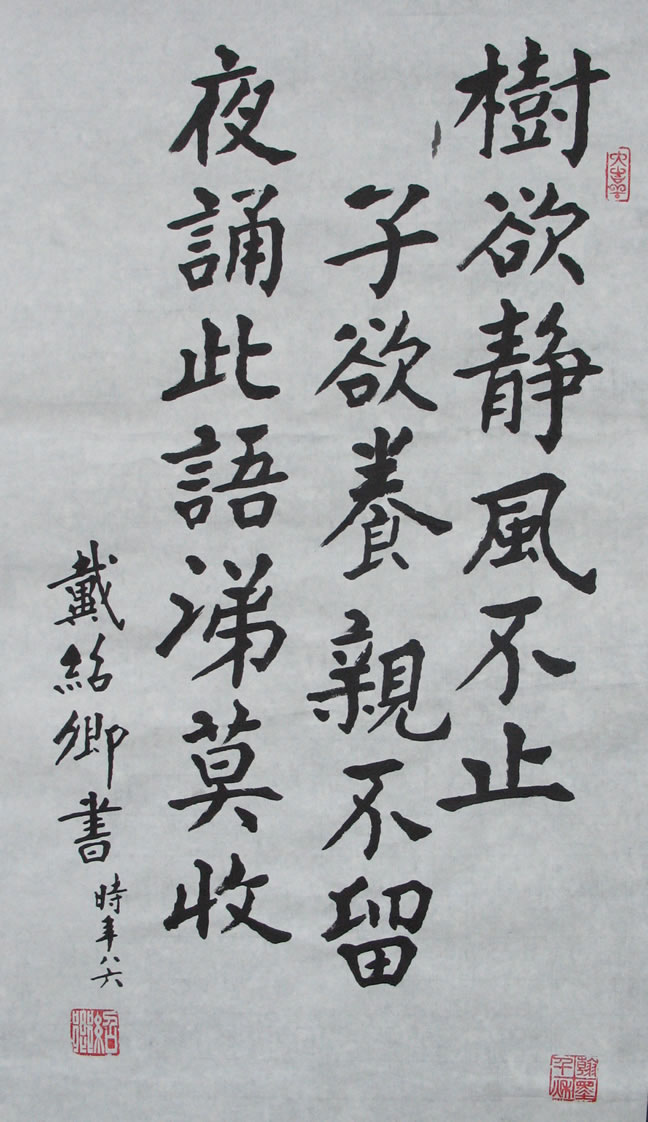 樹欲静風不止
子欲養親不留
夜誦此語涕莫收
戴紹卿書
時年八六
翰墨千秋